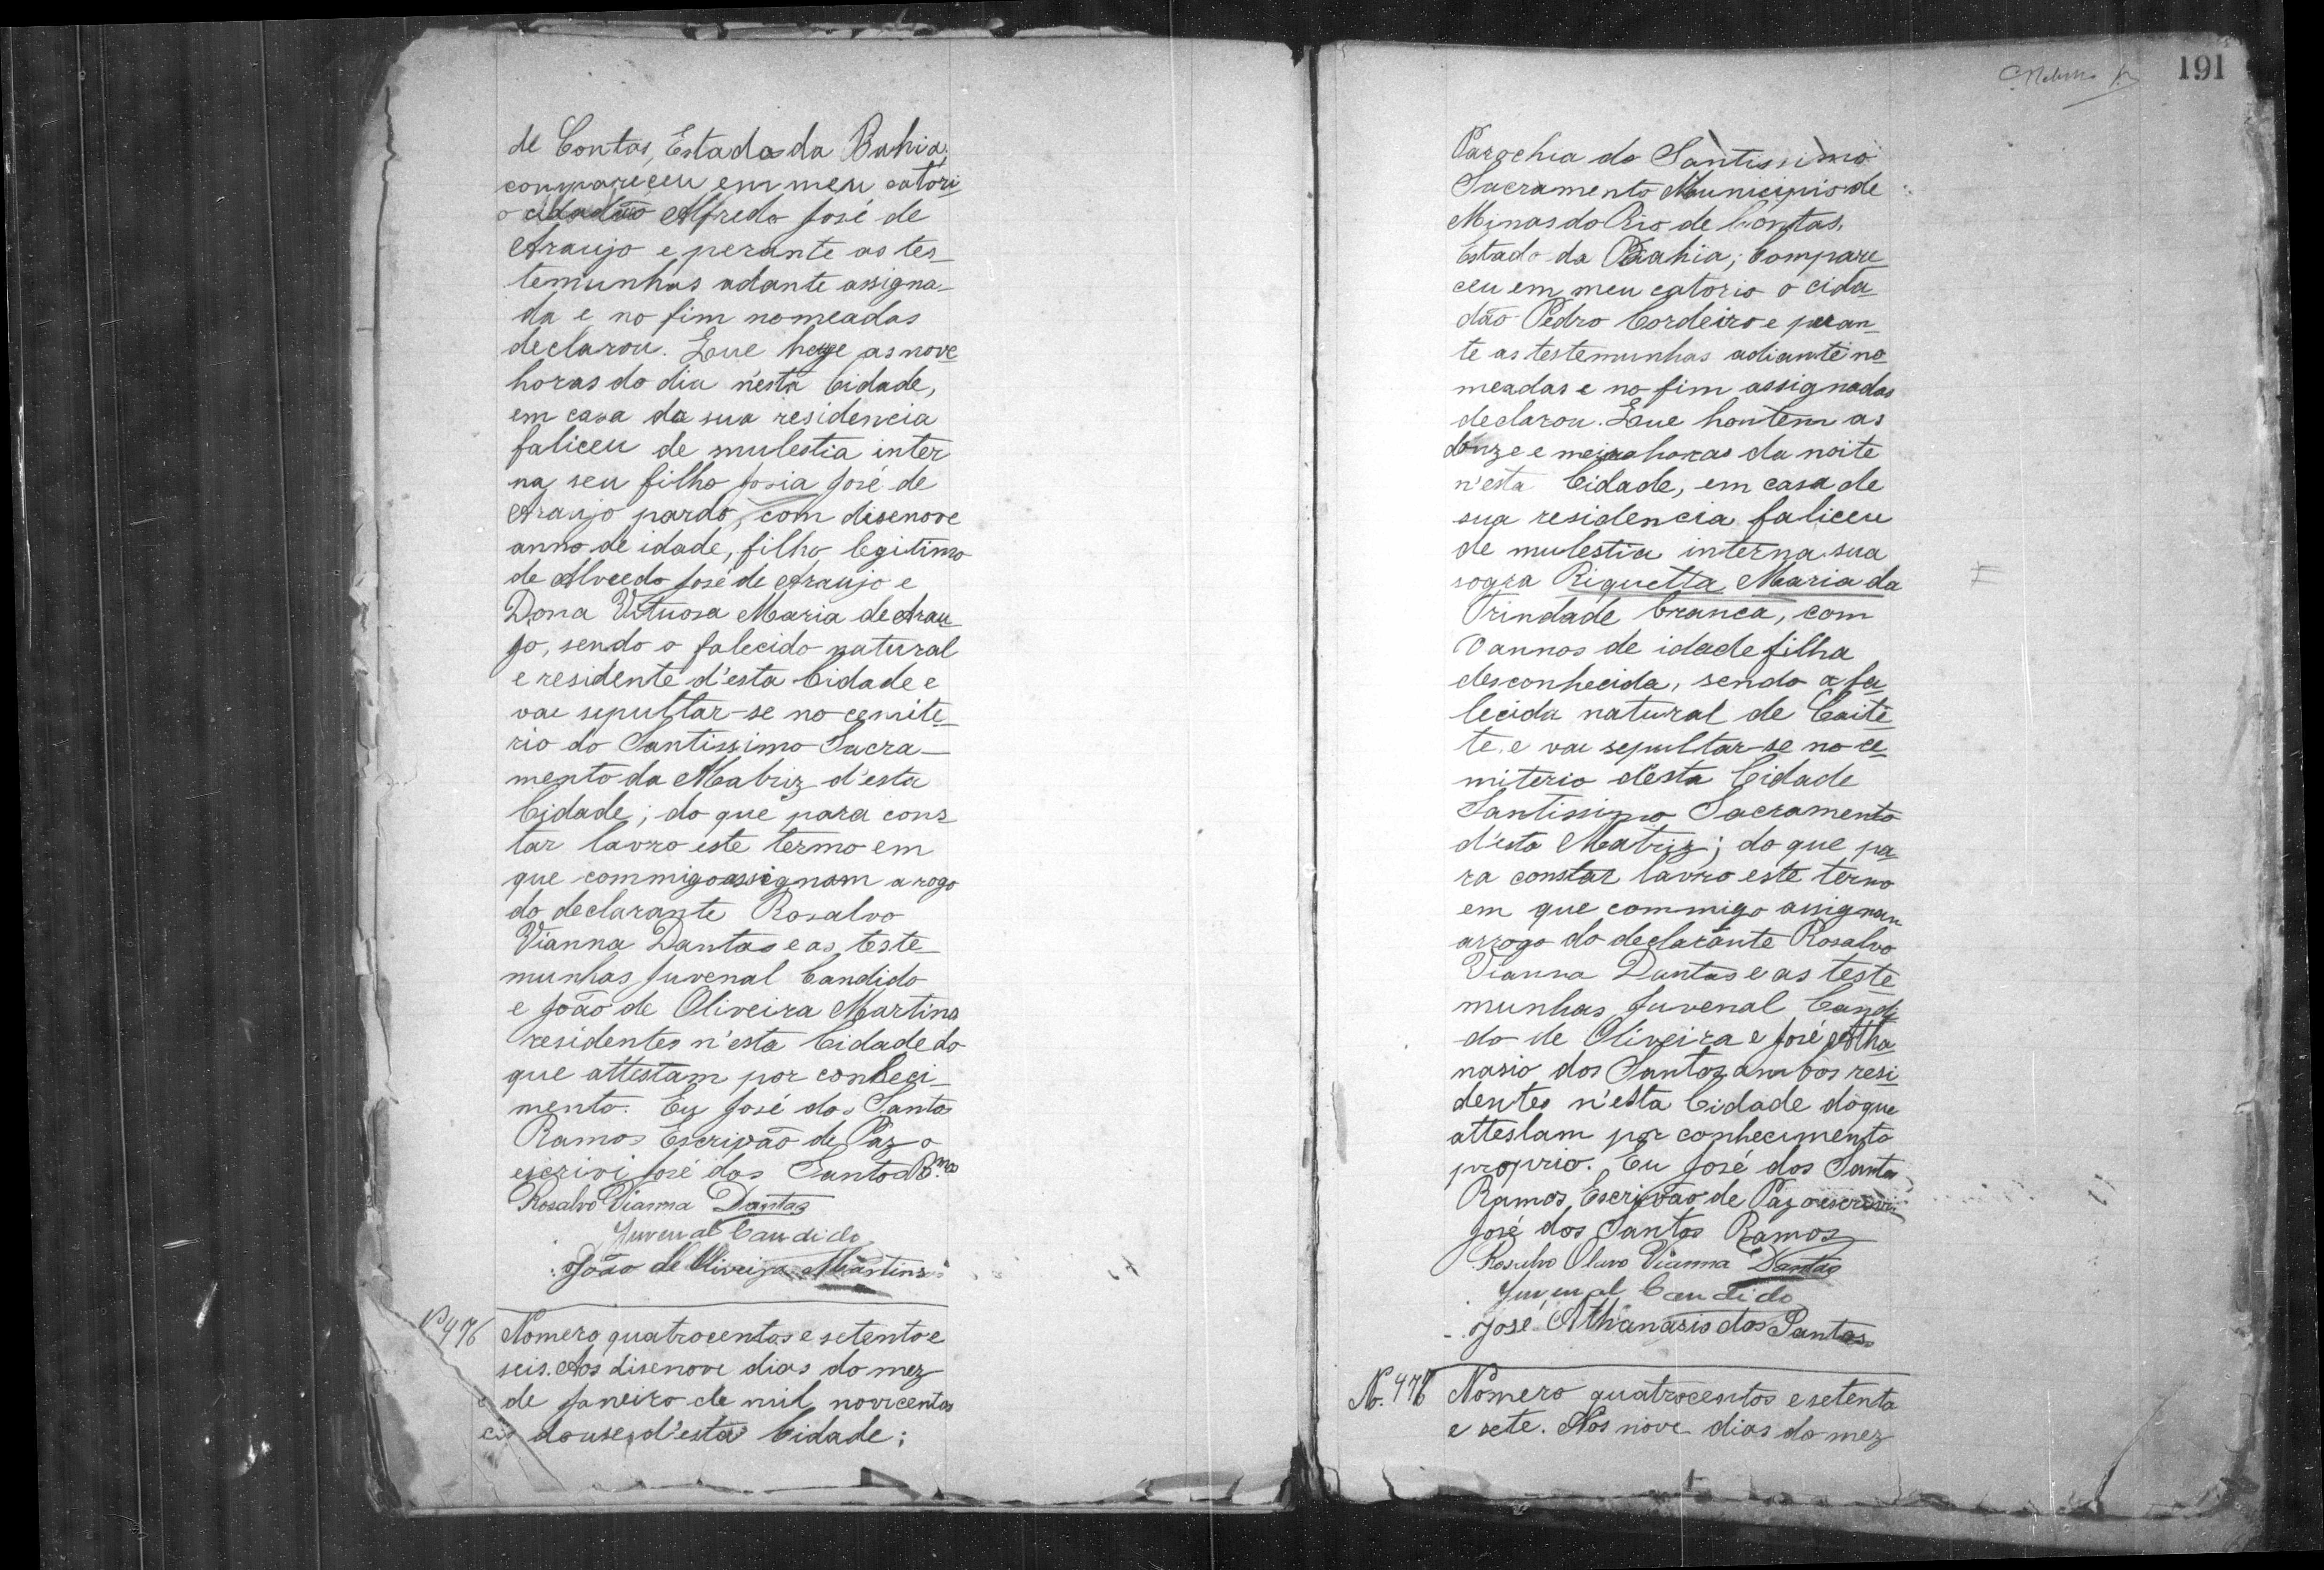 de Contas, Estado da Bahia,
compareceu em meu catori
o cidadão Alfredo José de
Araujo e perante as tes-
temunhas adante assigna-
da e no fim nomeadas
declarou. Que hoge as nove
horas do dia n'esta Cidade,
em casa da sua residencia
faliceu de mulestia inter
na seu filho Josia José de
Araujo pardo, com disenove
anno de idade, filho legitimo
de Alvredo José de Araujo e
Dona Vituosa Maria de Arau-
jo, sendo o falecido natural
e residente d'esta Cidade e
vae sepultar-se no cemite-
rio do Santissimo Sacra-
mento da Matriz d'esta
Cidade; do que para cons
tar lavro este termo em
que commigo assignam a rogo
do declarante Rosalvo
Vianna Dantas e as teste-
munhas Juvenal Candido
e João de Oliveira Martins
residentes n'esta Cidade do
que attestam por conheci-
mento. Eu José dos Santos
Ramos Escrivão de Paz o
escrivi José dos Santos Rmos
Rosalvo Vianna Dantas
Juvenal Candido
João de Oliveira Martins
Nº 476 Nomero quatrocentos e setento e
seis. Aos disenove dias do mez
de Janeiro de mil novicentos
e douse, d'esta Cidade;
191
Parochia do Santissimo
Sacramento Municipio de
Minas do Rio de Contas,
Estado da Bahia; Compare
ceu em meu catorio o cida
dão Pedro Cordeiro e peran
te as testemunhas adiante no
meadas e no fim assignadas
declarou. Que hontem as
honze e meja horas da noite
n'esta Cidade, em casa de
sua residencia faliceu
de mulestia interna sua
sogra Riquetta Maria da
Trindade branca, com
annos de idade filha
desconhecida, sendo a fa
lecida natural de Caite
te, e vae sepultar-se no ce
miterio d'esta Cidade
Santissimo Sacramento
d'esta Matriz; do que pa
ra constar lavro este termo
em que commigo assignan
arrogo do declarante Rosalvo
Vianna Dantas e as teste
munhas Juvenal Candi
do de Oliveira e José Atha
nasio dos Santos ambos resi
dentes n'esta Cidade do que
attestam por conhecimento
proprio. Eu José dos Santos
Ramos Escrivão de Paz o escrivi
José dos Santos Ramos
Rosalvo Olavo Vianna Dantas
Juvenal Candido
José Athanasio dos Santos
No. 476 Nomero quatrocentos e setenta
e sete. Aos nove dias do mez